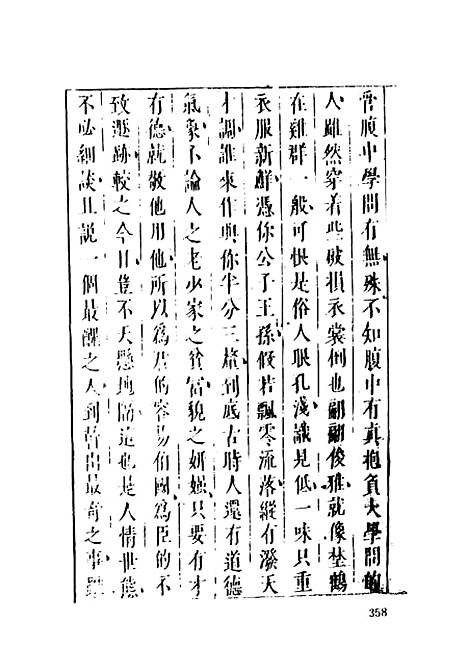 曾腹中學問有無殊不知腹中有真抱負大學問的
人雖然穿着些破損衣裳倒也翩翩俊雅就像埜鶴
在雞群一般可恨是俗人眼孔淺識見低一味只重
衣服新鮮憑你公子王孫假若飄零流落縱有潑天
才調誰來作興你半分三釐到底古時人還有道德
氣象不論人之老少家之貧富貌之妍媸只要有才
有德就敬他用他所以為君的容易伯國為臣的不
致溷跡較之今日豈不天懸地隔這也是人情世態
不必細談且說一個最醜之人到幹出最奇之事
358